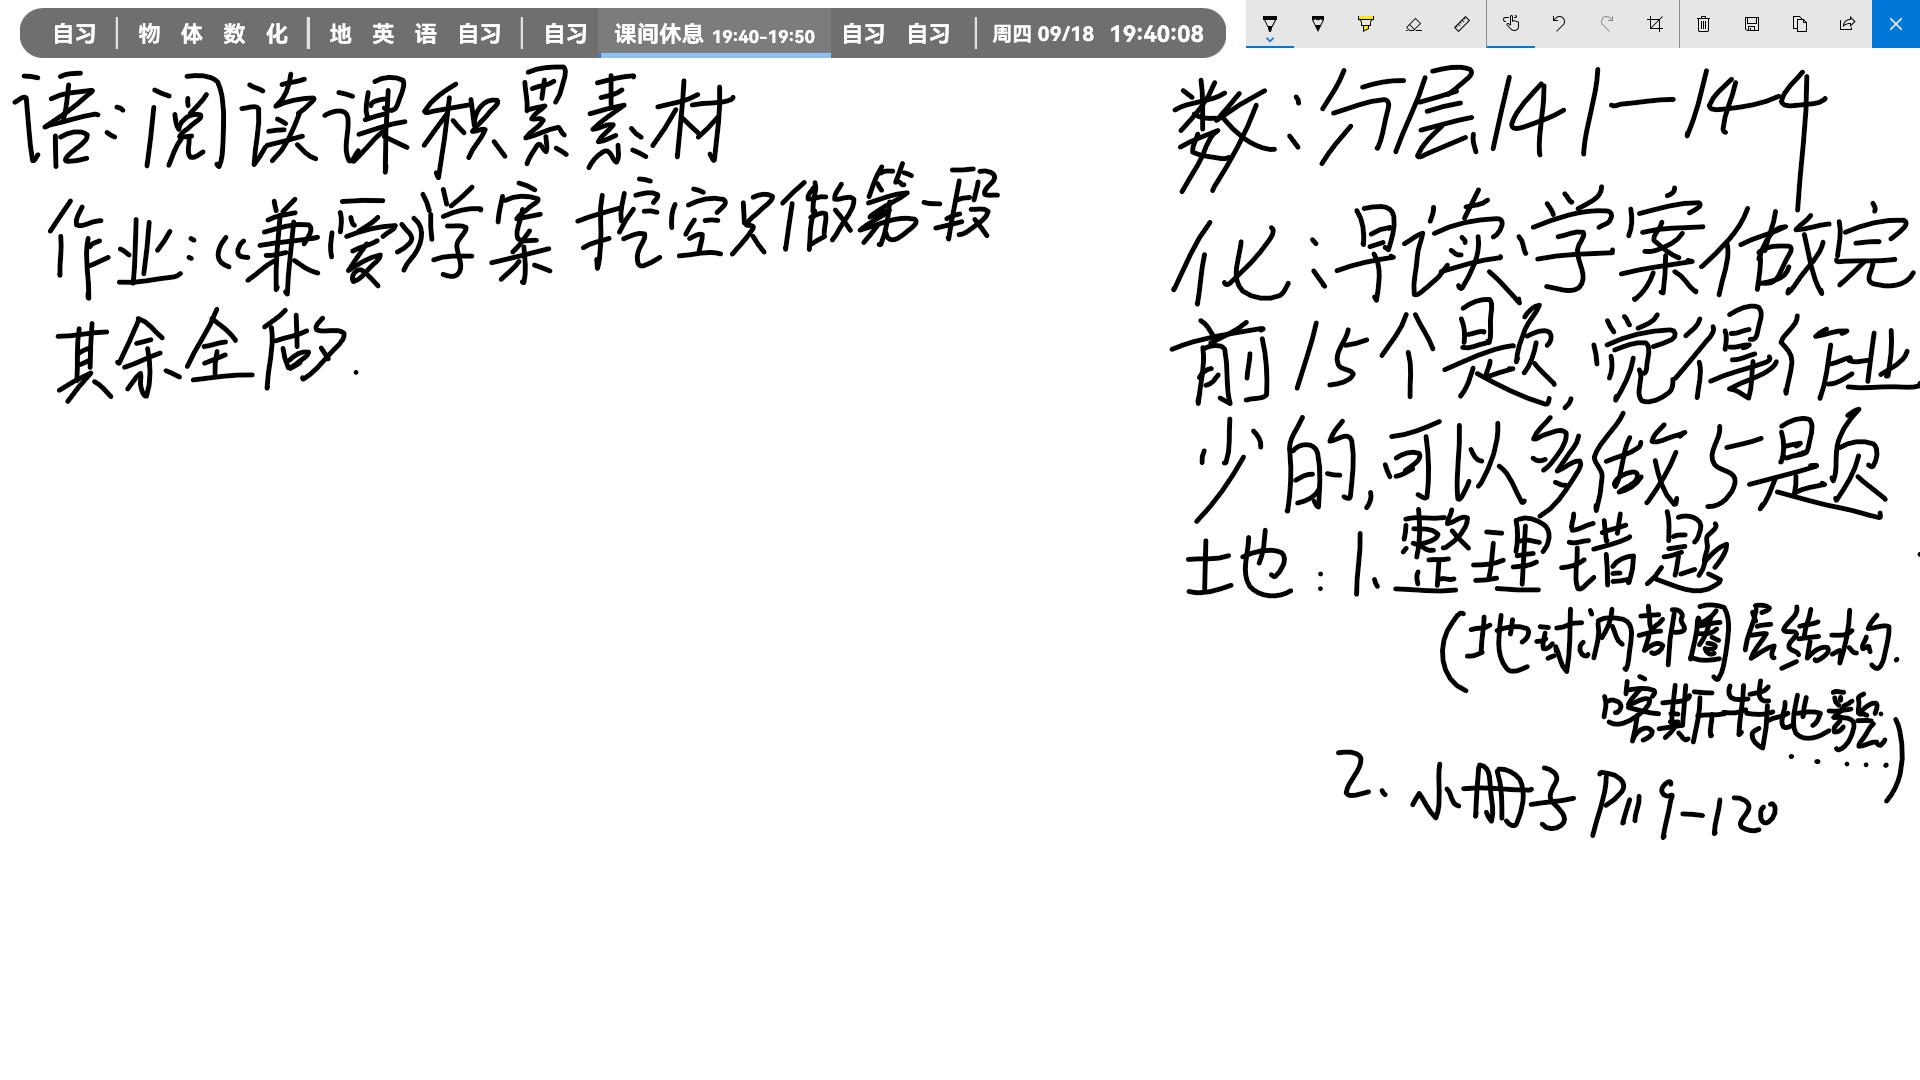 自习 | 物 体 数 化 | 地 英 语 自习 | 自习 课间休息 19:40-19:50 自习 自习 | 周四 09/18 19:40:08
语:阅读课积累素材
作业:《兼爱》学案 挖空只做第一段
其余全做.
数:分层141—144
化:早读学案做完
前15个题,觉得作业
少的,可以多做5题
地:1.整理错题
(地球内部圈层结构.
喀斯特地貌......)
2.小册子P119-120